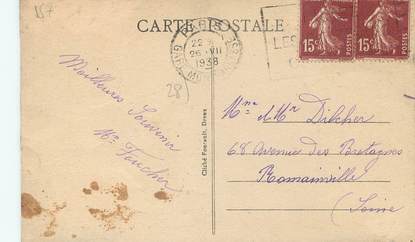 157
CARTE POSTALE
PARIS
22
26 - VII
1938
LES
15c POSTES
15c POSTES
28
Meilleurs Souvenirs
Mr Faucher
Cliché Foucault, Dreux
Mme & Mr Dilcher
68 Avenue des Bretagnes
Romainville
Seine